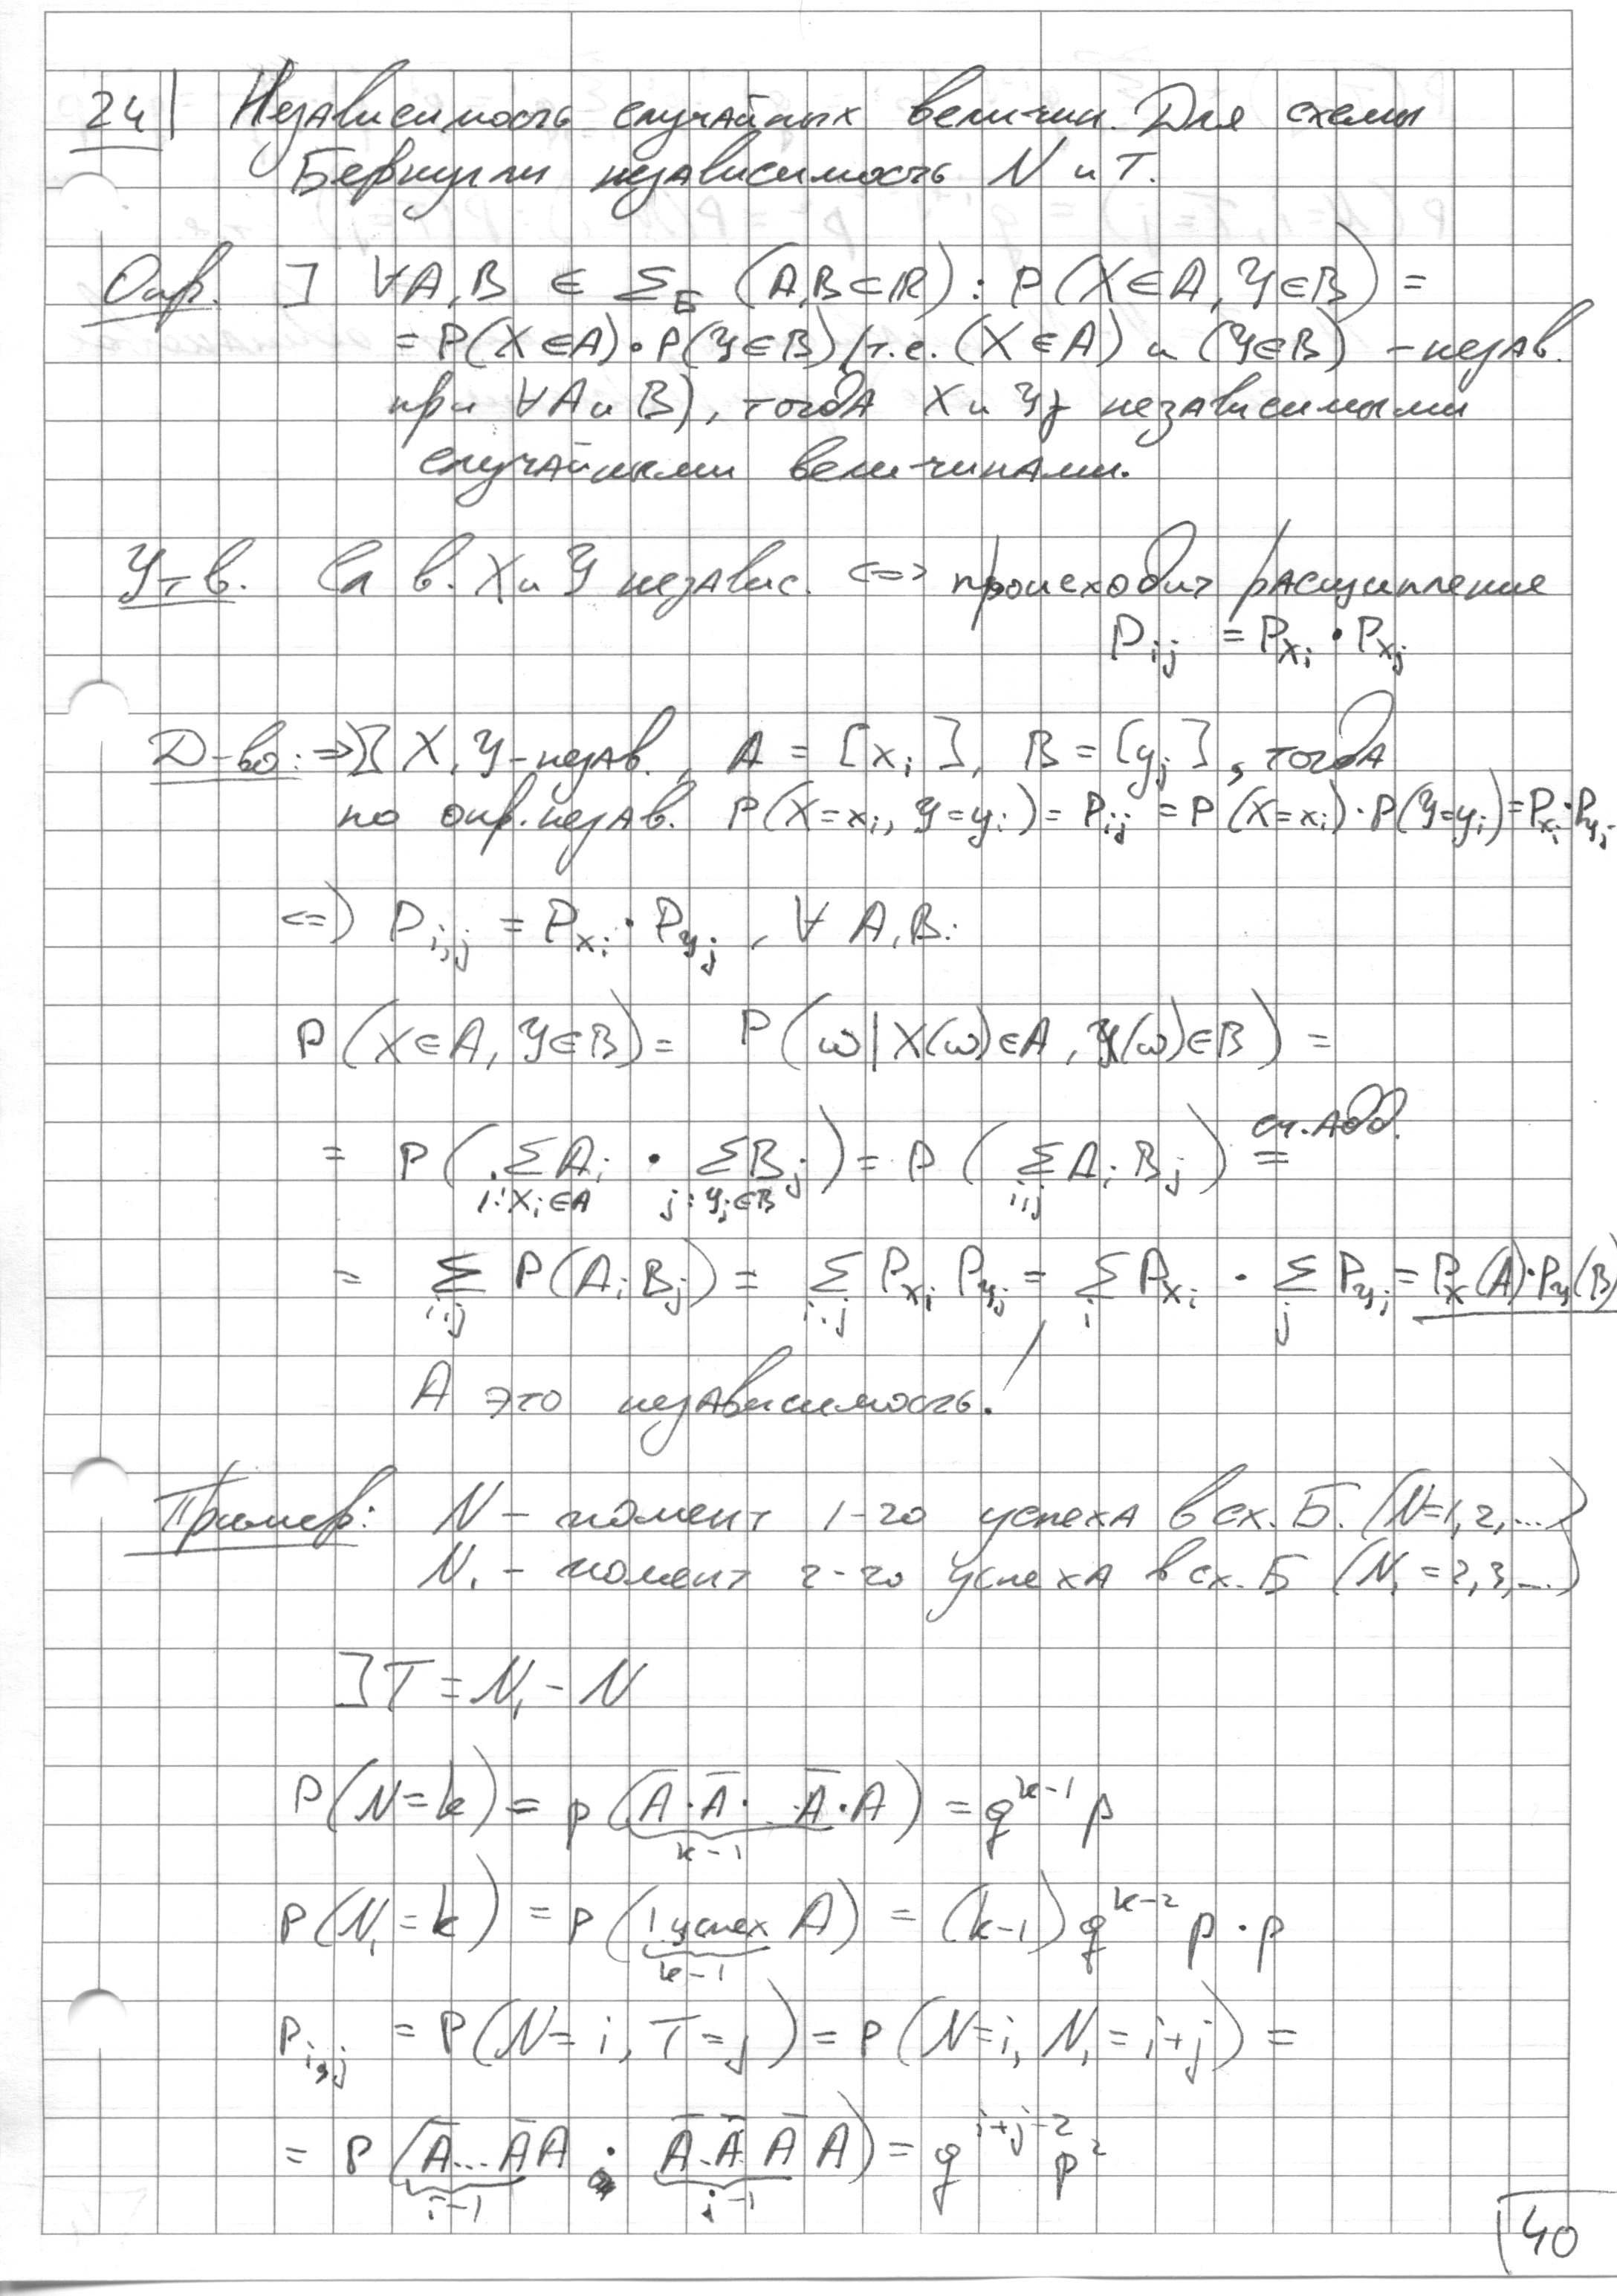 24| Независимость случайных величин. Для схемы
Бернулли независимость N и T.
Опр. ] ∀A,B ∈ Σ_Б (A,B⊂ℝ): P(X∈A, Y∈B) =
= P(X∈A)·P(Y∈B) (т.е. (X∈A) и (Y∈B) - незав.
при ∀A и B), тогда X и Y наз. независимыми
случайными величинами.
Утв. Сл в. X и Y независ. <=> происходит расщипление
P_ij = P_xi · P_xj
Д-во: =>] X, Y - незав., A = [x_i], B = [y_j], тогда
по опр. незав. P(X=x_i, Y=y_i) = P_ij = P(X=x_i)·P(Y=y_i) = P_xi·P_yj
<=) P_i,j = P_xi · P_yj, ∀ A,B:
P(X∈A, Y∈B) = P(ω|X(ω)∈A, Y(ω)∈B) =
= P(Σ_{i:x_i∈A} A_i · Σ_{j:y_j∈B} B_j) = P(Σ_{i,j} A_i B_j) = сч.адд.
= Σ_{i,j} P(A_i B_j) = Σ_{i,j} P_xi P_yj = Σ_i P_xi · Σ_j P_yj = P_x(A)·P_y(B)
А это независимость!
Пример: N - момент 1-го успеха в сх. Б. (N=1,2,...)
N_1 - момент 2-го успеха в сх. Б (N_1=2,3,...)
] T = N_1 - N
P(N=k) = p(Ā·Ā· ·Ā·A) = q^{k-1} p
k-1
P(N_1=k) = p(1 успех A) = (k-1) q^{k-2} p·p
k-1
P_i,j = P(N=i, T=j) = P(N=i, N_1=i+j) =
= P(Ā...ĀA · Ā.Ā Ā A) = q^{i+j-2} p^2
i-1 j-1
40